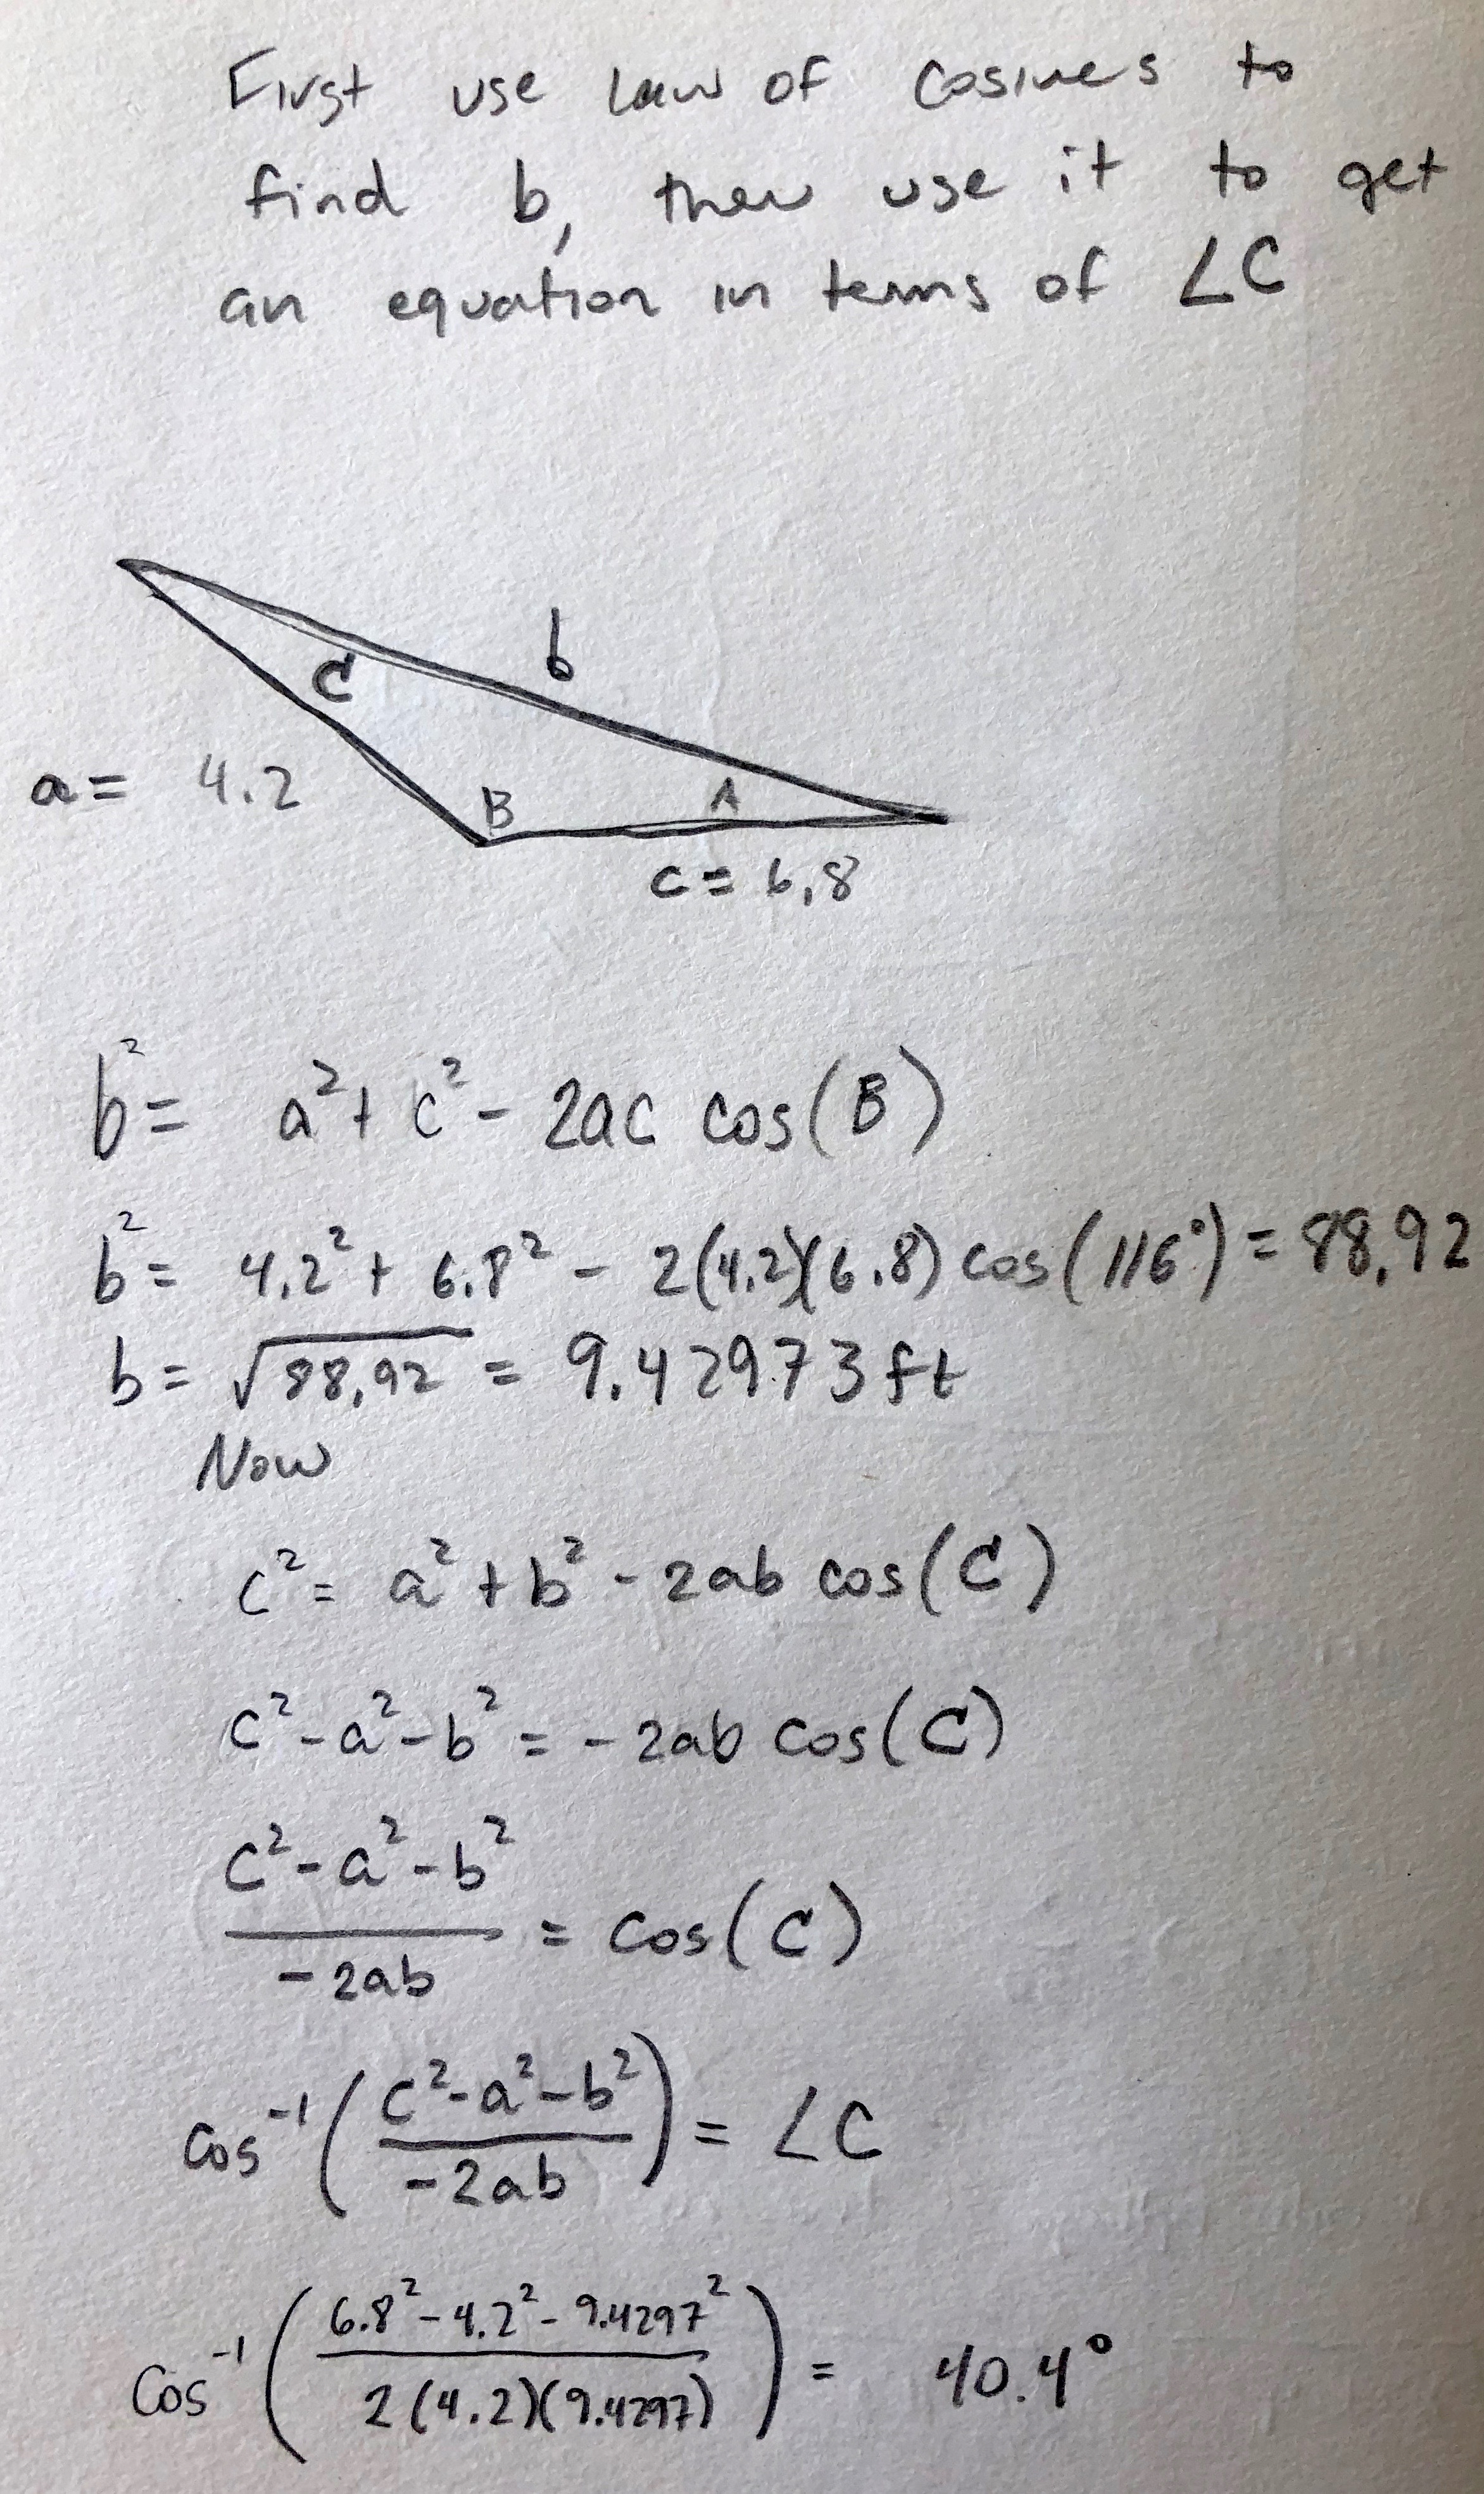 First use law of cosines to
find b, then use it to get
an equation in terms of ∠C
b
C
a = 4.2
B
A
c = 6,8
b² = a² + c² - 2ac cos(B)
b² = 4.2² + 6.8² - 2(4.2)(6.8) cos(116°) = 88,92
b = √88,92 = 9.42973 ft
Now
c² = a² + b² - 2ab cos(C)
c² - a² - b² = -2ab cos(C)
c² - a² - b²
/ -2ab = cos(C)
cos⁻¹((c² - a² - b²) / (-2ab)) = ∠C
cos⁻¹((6.8² - 4.2² - 9.4297²) / (2(4.2)(9.4297))) = 40.4°